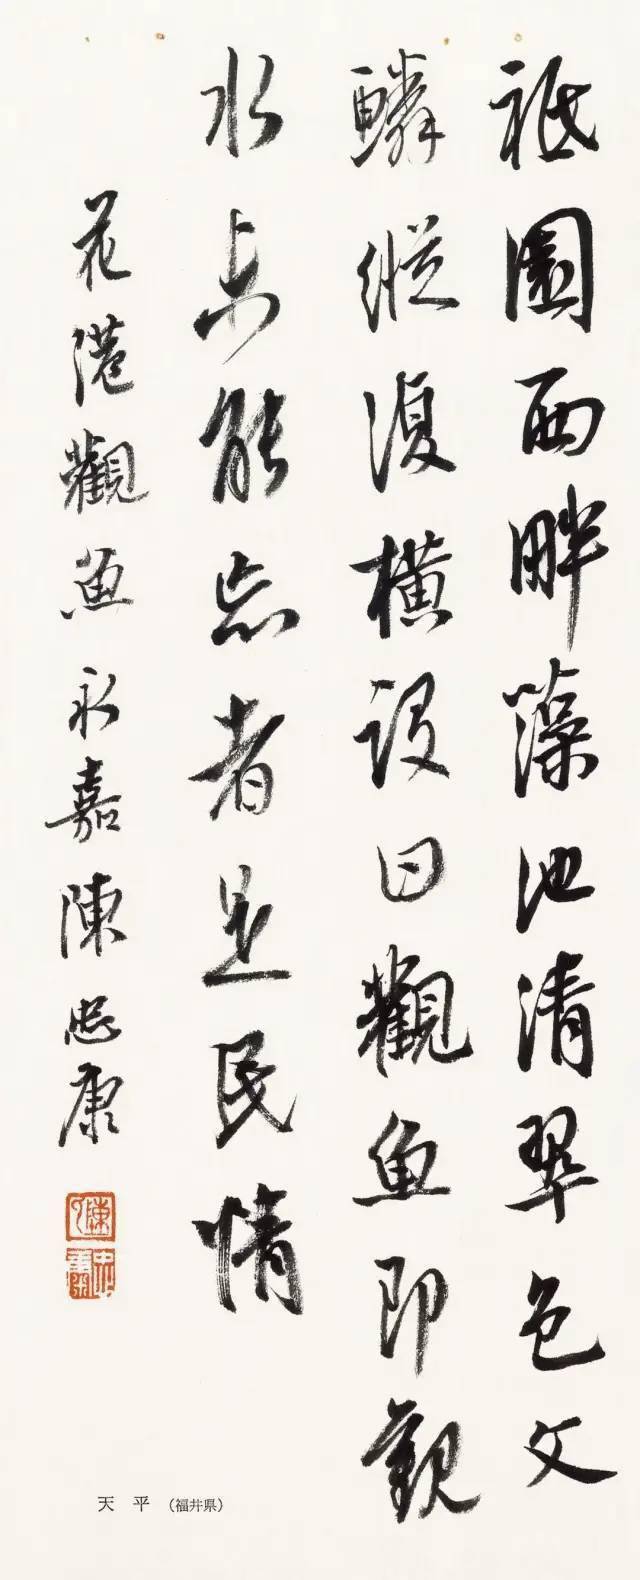 祇園西畔藻池清翠色文
鱗縱復横設曰觀魚即觀
水能忘者是民情
花港觀魚永嘉陳忠康
天平（福井県）